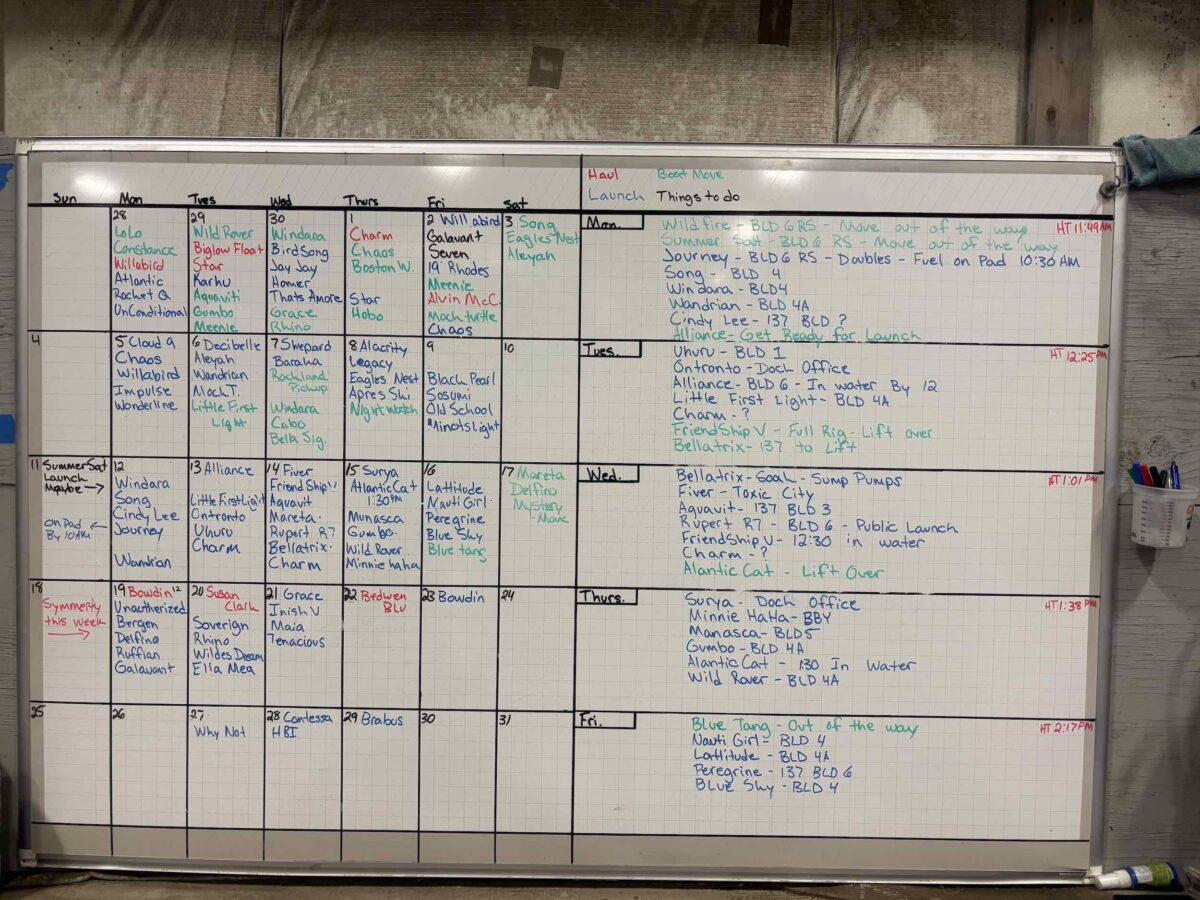 Haul Boat Move
Launch Things to do
Sun Mon Tues Wed Thurs Fri Sat
28
LoLo
Constance
Willabird
Atlantic
Rocket Q
UnConditional
29
Wild Rover
Biglow Float
Star
Karhu
Aquaviti
Gumbo
Meenie
30
Windara
BirdSong
Jay Jay
Homer
Thats Amore
Grace
Rhino
1
Charm
Chaos
Boston W.
Star
Hobo
2 Willabird
Galavant
Seven
19' Rhodes
Meenie
Alvin McC.
Mock turtle
Chaos
3 Song
Eagles Nest
Aleyah
4
5 Cloud 9
Chaos
Willabird
Impulse
Wonderline
6 Decibelle
Aleyah
Wandrian
Mock T.
Little First
Light
7 Shepard
Baraka
Rockland
Pickup
Windara
Cabo
Bella Sig.
8 Alacrity
Legacy
Eagles Nest
Apres Ski
Night Watch
9
Black Pearl
Sosumi
Old School
Minots Light
10
11 Summer Sat
Launch
Maybe →
On Pad ←
By 10AM
12
Windara
Song
Cindy Lee
Journey
Wandrian
13 Alliance
Little First Light
Ontronto
Uhuru
Charm
14 Fiver
FriendShip V
Aquavit
Mareta
Rupert R7
Bellatrix
Charm
15 Surya
Atlantic Cat
1:30PM
Munasca
Gumbo
Wild Rover
Minnie haha
16
Lattitude
Nauti Girl
Peregrine
Blue Sky
Blue tang
17 Mareta
Delfino
Mystery
Move
18
Symmerty
this week
→
19 Bowdin 12
Unautherized
Bergen
Delfino
Ruffian
Galavant
20 Susan
Clark
Soverign
Rhino
Wildes Dream
Ella Mea
21 Grace
Inish V
Maia
Tenacious
22 Bedwen
BLU
23 Bowdin
24
25
26
27
Why Not
28 Contessa
HBI
29 Brabus
30
31
Mon. HT 11:49AM
Wildfire - BLD 6 RS - Move out of the way
Summer Salt - BLD 6 RS - Move out of the way
Journey - BLD 6 RS - Doubles - Fuel on Pad 10:30 AM
Song - BLD 4
Windara - BLD4
Wandrian - BLD 4A
Cindy Lee - 137 BLD ?
Alliance - Get Ready for Launch
Tues. HT 12:25PM
Uhuru - BLD 1
Ontronto - Doch Office
Alliance - BLD 6 - In water By 12
Little First Light - BLD 4A
Charm - ?
FriendShip V - Full Rig - Lift over
Bellatrix - 137 to Lift
Wed. HT 1:01 PM
Bellatrix - Soak - Sump Pumps
Fiver - Toxic City
Aquavit - 137 BLD 3
Rupert R7 - BLD 6 - Public Launch
FriendShip V - 12:30 in water
Charm - ?
Alantic Cat - Lift Over
Thurs. HT 1:38 PM
Surya - Doch Office
Minnie HaHa - BBY
Manasca - BLD5
Gumbo - BLD 4A
Alantic Cat - 1:30 In Water
Wild Rover - BLD 4A
Fri. HT 2:17PM
Blue Tang - Out of the way
Nauti Girl - BLD 4
Lattitude - BLD 4A
Peregrine - 137 BLD 6
Blue Sky - BLD 4